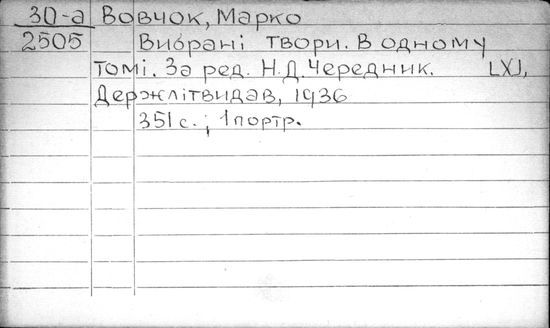 30-а Вовчок, Марко
2505 Вибрані твори. В одному
томі. За ред. Н.Д. Чередник. [Х],
Держлітвидав, 1936
351 с.; 1 портр.